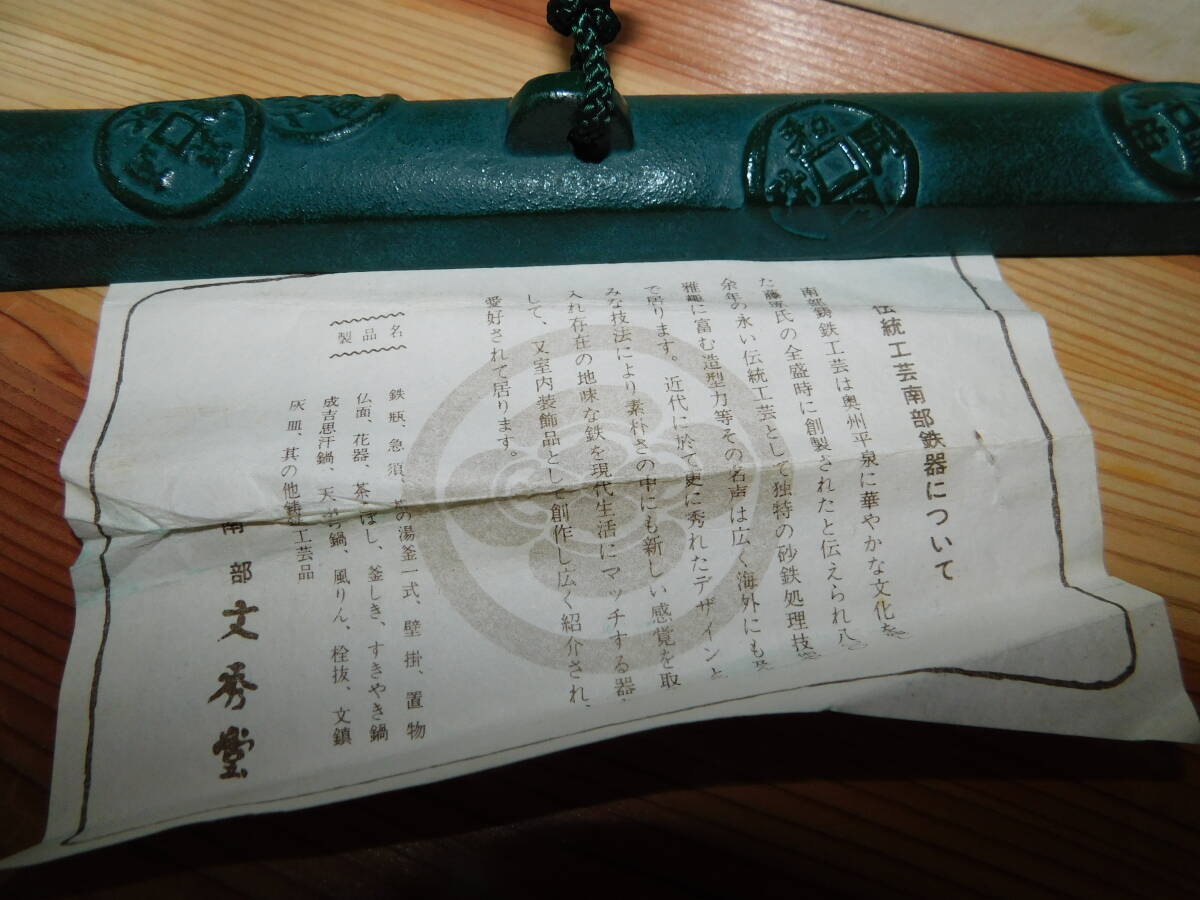 伝統工芸南部鉄器について
南部鋳鉄工芸は奥州平泉に華やかな文化を
た藤原氏の全盛時に創製されたと伝えられ八
余年の永い伝統工芸として独特の砂鉄処理技
雅趣に富む造型力等その名声は広く海外にも及
で居ります。近代に於て更に秀れたデザインと
みな技法により素朴さの中にも新しい感覚を取
入れ存在の地味な鉄を現代生活にマッチする器
して、又室内装飾品として創作し広く紹介され、
愛好されて居ります。
製品名
鉄瓶、急須、茶の湯釜一式、壁掛、置物
仏面、花器、茶こぼし、釜しき、すきやき鍋
成吉思汗鍋、天ぷら鍋、風りん、栓抜、文鎮
灰皿、其の他鋳工芸品
南部文秀堂